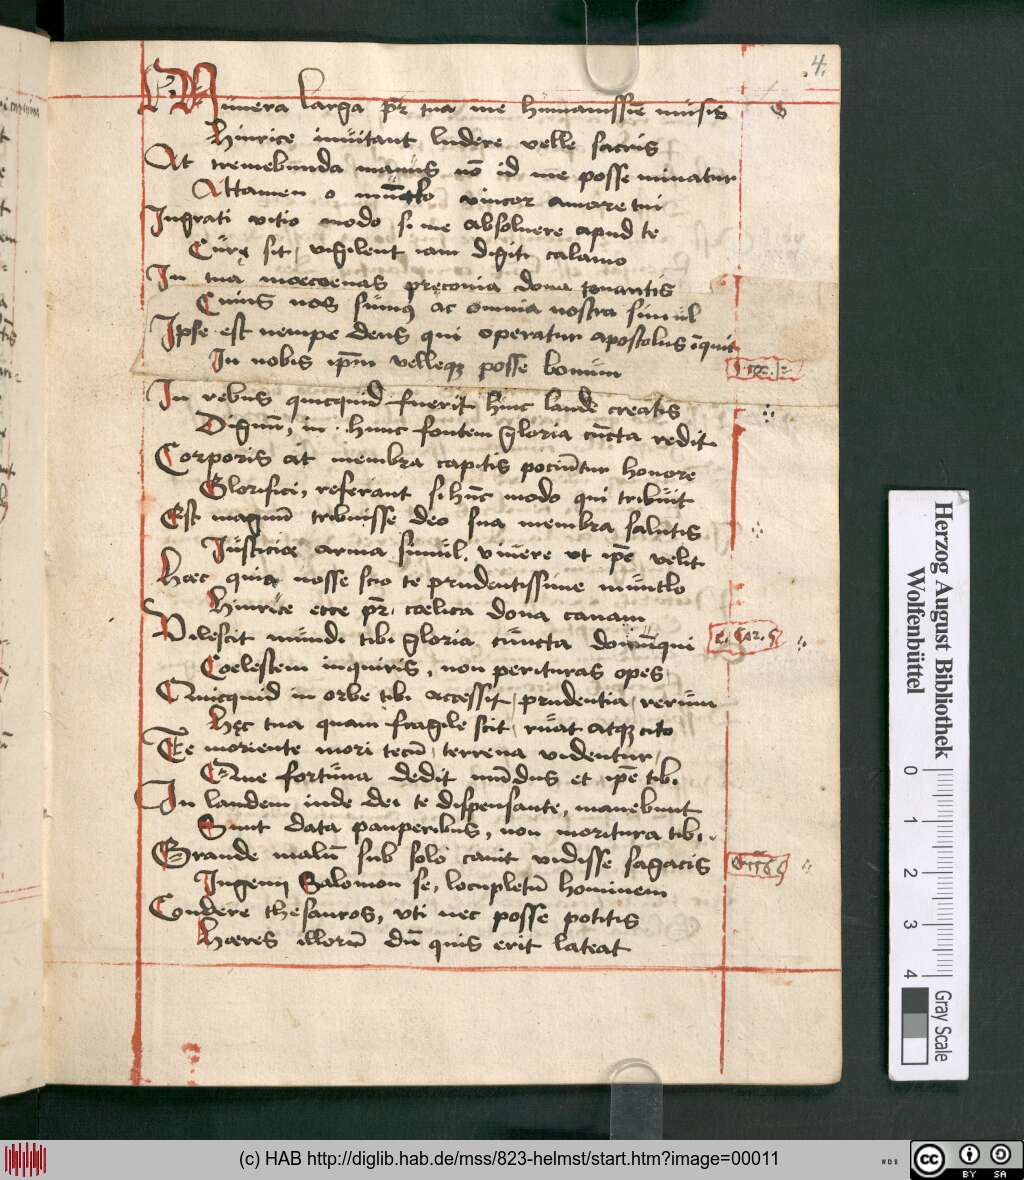 4.
Munera larga pr̄ tua me humanissīe musis
Hinrice inuitant ludere velle sacris
At tremebunda manus nō id me posse minatur
Attamen o mūtlo vincor amore tui
Ingrati vitio modo si me absoluere apud te
Curę sit, vigilent iam digiti calamo
In tua moecoenas pręconia dona tonantis
Cuius nos sumus ac omnia nostra simul
Ipse est nempe deus qui operatur apostolus īquit
In nobis ip̄m velleqꝫ posse bonum
In rebus quicquid fuerit hinc laude creatis
Dignū, in hunc fontem gloria cūcta redit
Corporis at membra capitis pociūtur honore
Glorifici, referant si hūc modo qui tribuit
Est magnū tribuisse deo sua membra salutis
Iusticiæ arma simul, viuere vt ip̄e velit
Haec quia nosse scio te prudentissime muntlo
Hinrice ecce pr̄, cœlica dona canam
Vilescit mundi tibi gloria cuncta
Coelestem inquiris, non perituras opes,
Quicquid in orbe tibi accessit, prudentia, rerum
Hęc tua quam fragile scit, ruat atqꝫ cito
Te moriente mori tecū, terrena videntur,
Que fortuna dedit mūdus et ip̄e tibi
In laudem inde dei te dispensante, manebunt
Sunt data pauperibus, non moritura tibi.
Grande malū sub solo canit vidisse sagacis
Ingenij Salomon se, locupletū hominem
Condere thesauros, vti nec posse potitis
Hæres illorū dū quis erit lateat
Herzog August Bibliothek
Wolfenbüttel
0 1 2 3 4
Gray Scale
(c) HAB http://diglib.hab.de/mss/823-helmst/start.htm?image=00011
WDB
cc BY SA